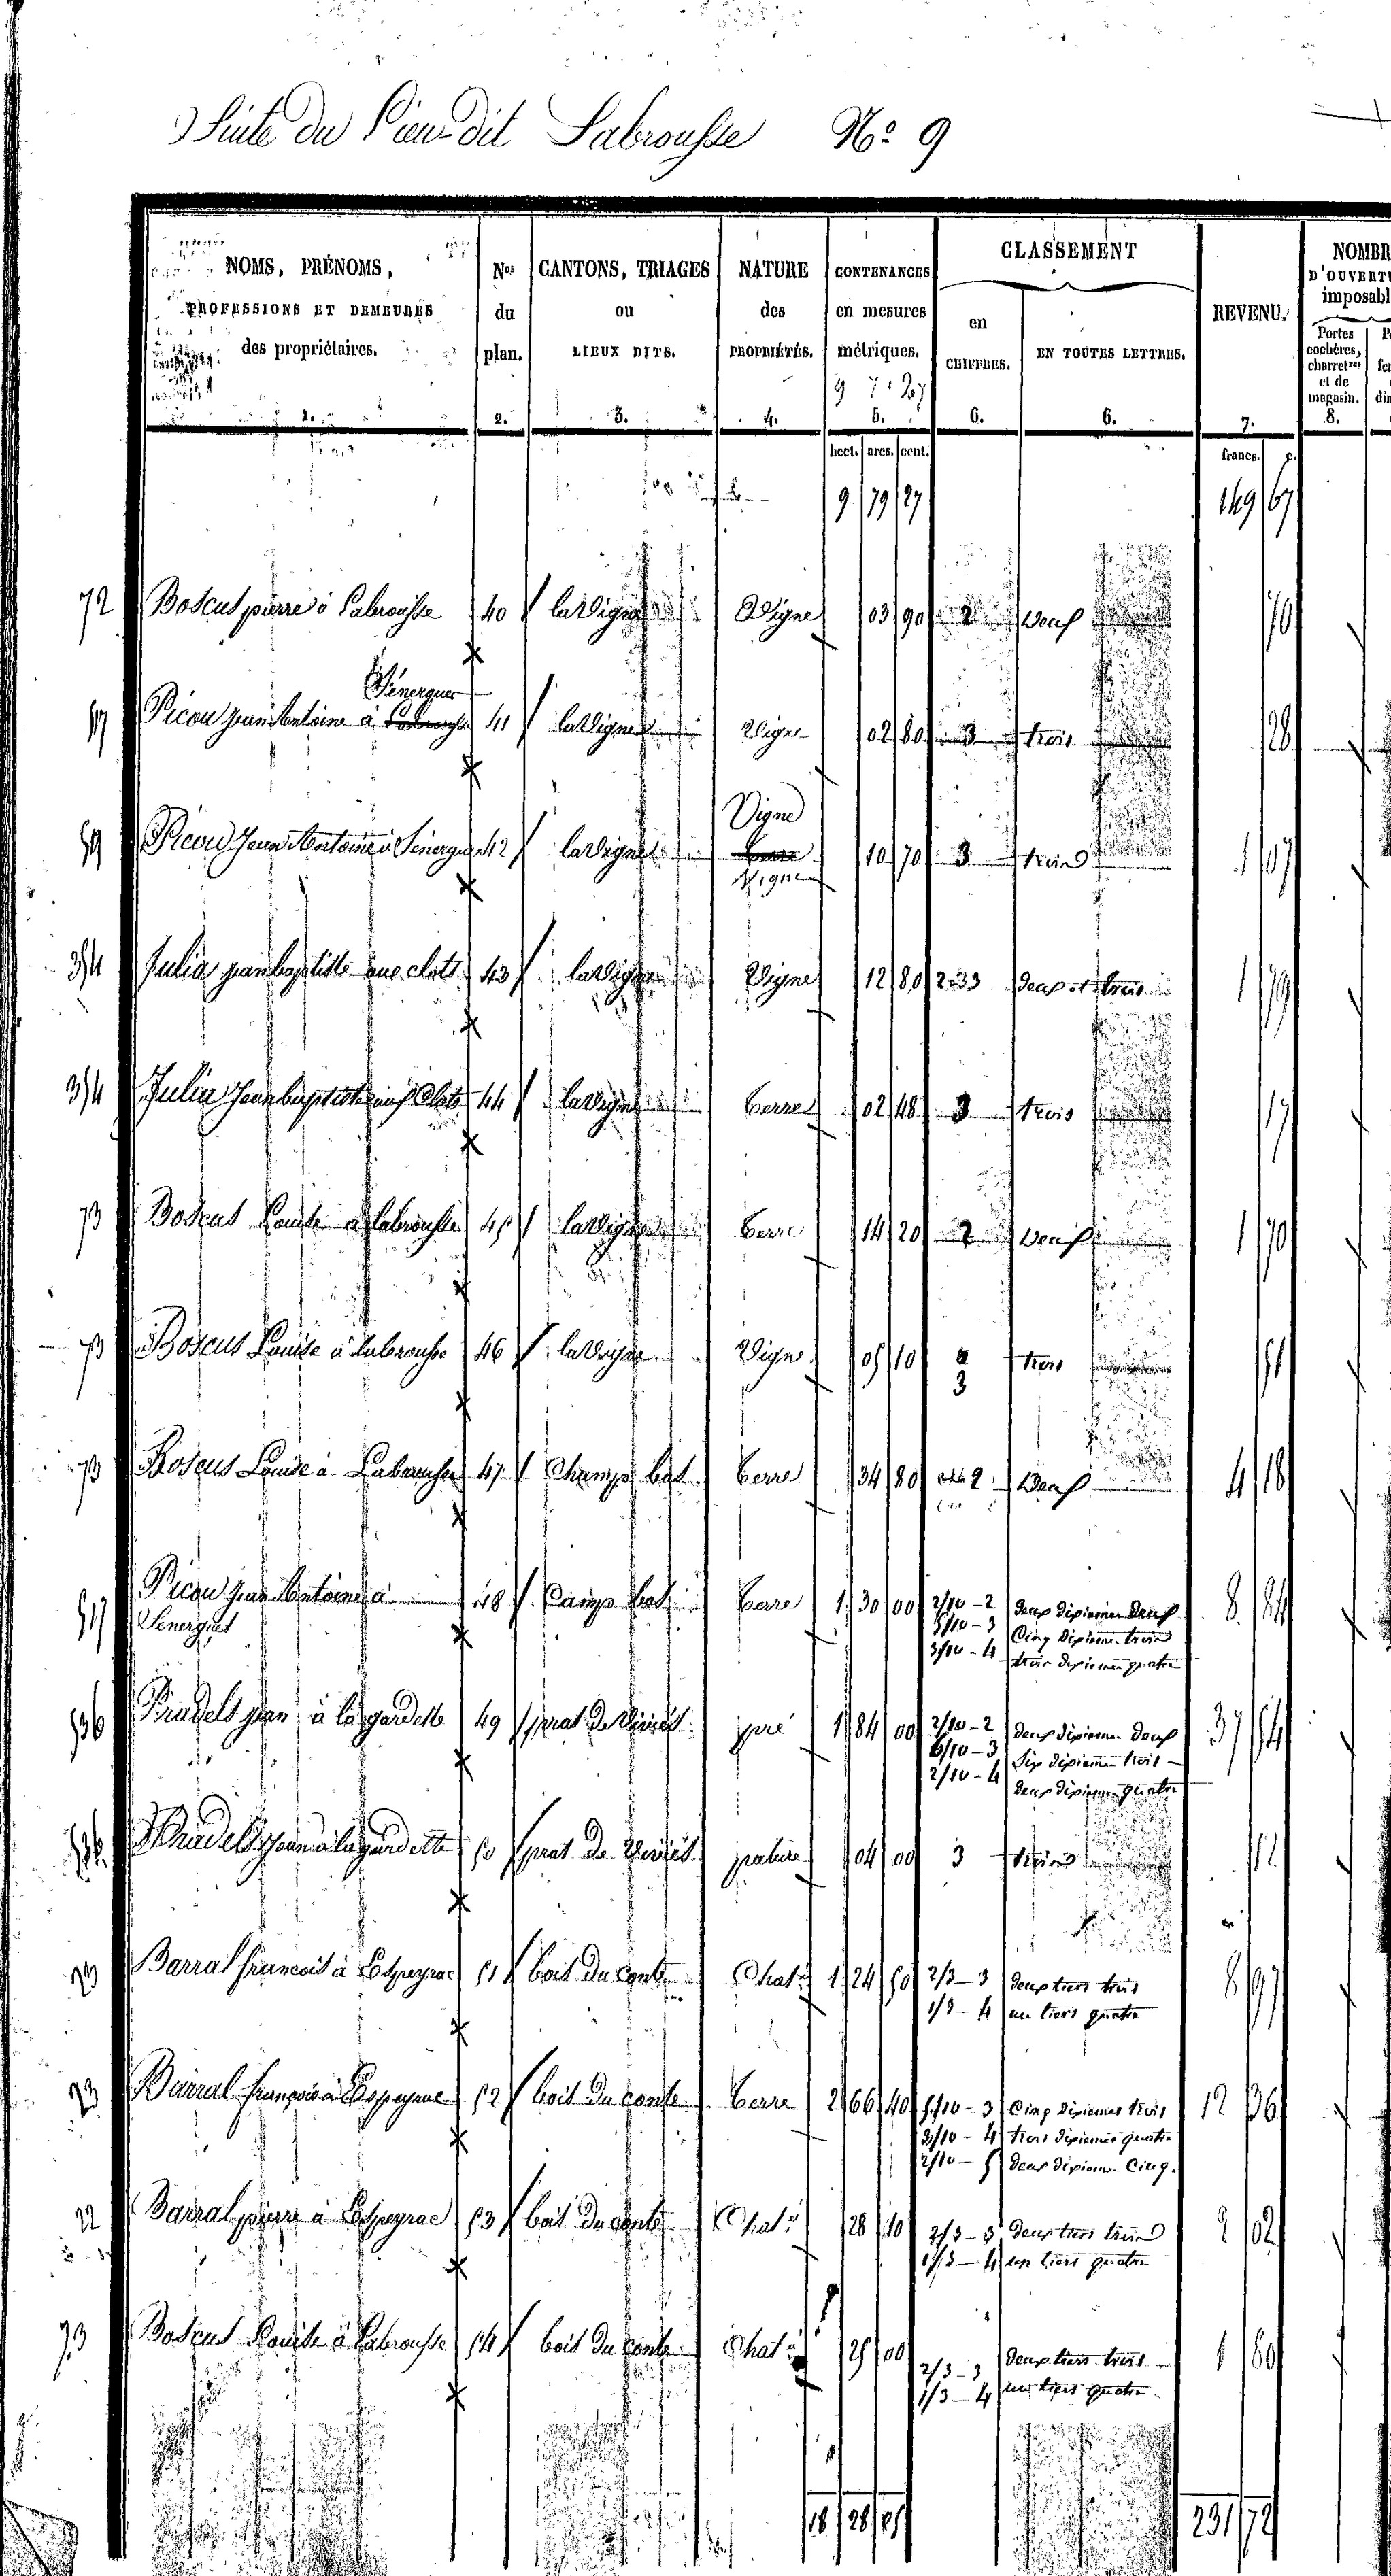 Suite du Lieu-dit Labrousse N.º 9
NOMS, PRÉNOMS, PROFESSIONS ET DEMEURES des propriétaires. 1.
Nos du plan. 2.
CANTONS, TRIAGES ou LIEUX DITS. 3.
NATURE des PROPRIÉTÉS. 4.
CONTENANCES en mesures métriques. 5.
CLASSEMENT
en CHIFFRES. 6.
EN TOUTES LETTRES. 6.
REVENU. 7.
NOMBR
D'OUVERTU
imposabl
Portes cochères, charret.res et de magasin. 8.
hect. ares. cent. francs. c.
9 79 27 149 67
72 Boscus pierre à Labrousse 40 la Vigne Vigne 03 90 2 Deux 70
Sénergues
Picou Jean Antoine à Labrousse 41 la Vigne Vigne 02 80 3 trois 28
Vigne
Picou Jean Antoine à Sénergues 42 la Vigne terre 10 70 3 trois 1 07
Vigne
354 Julia jean baptiste aux clots 43 la Vigne Vigne 12 80 2-33 deux et trois 1 79
354 Julia Jean baptiste aux Clots 44 la Vigne terre 02 48 3 trois 17
73 Boscus Louise à labrousse 45 la Vigne terre 14 20 2 Deux 1 70
73 Boscus Louise à labrousse 46 la Vigne Vigne 05 10 3 trois 51
73 Boscus Louise à Labrousse 47 Champ bas terre 34 80 2 Deux 4 18
517 Picou Jean Antoine à 48 Camp bas terre 1 30 00 2/10-2 deux dixiemes deux 8 84
Senergues 5/10-3 Cinq dixiemes trois
3/10-4 trois dixiemes quatre
536 Pradels jean à la gardelle 49 prat de pré 1 84 00 2/10-2 deux dixiemes deux 37 54
6/10-3 Six dixiemes trois
2/10-4 deux dixiemes quatre
536 Pradels Jean à la gardelle 50 prat de pature 04 00 3 trois 12
23 Barral francois à Espeyrac 51 bois du conte Chat.r 1 24 50 2/3-3 deux tiers trois 8 97
1/3-4 un tiers quatre
23 Barral françois à Espeyrac 52 bois du conte terre 2 66 40 5/10-3 Cinq dixiemes trois 12 36
3/10-4 trois dixiemes quatre
2/10-5 deux dixiemes Cinq.
22 Barral pierre à Espeyrac 53 bois du conte Chat.r 28 10 2/3-3 deux tiers trois 2 02
1/3-4 un tiers quatre
73 Boscus Louise à Labrousse 54 bois du conte Chat.r 25 00 2/3-3 deux tiers trois 1 80
1/3-4 un tiers quatre
18 28 05 231 72